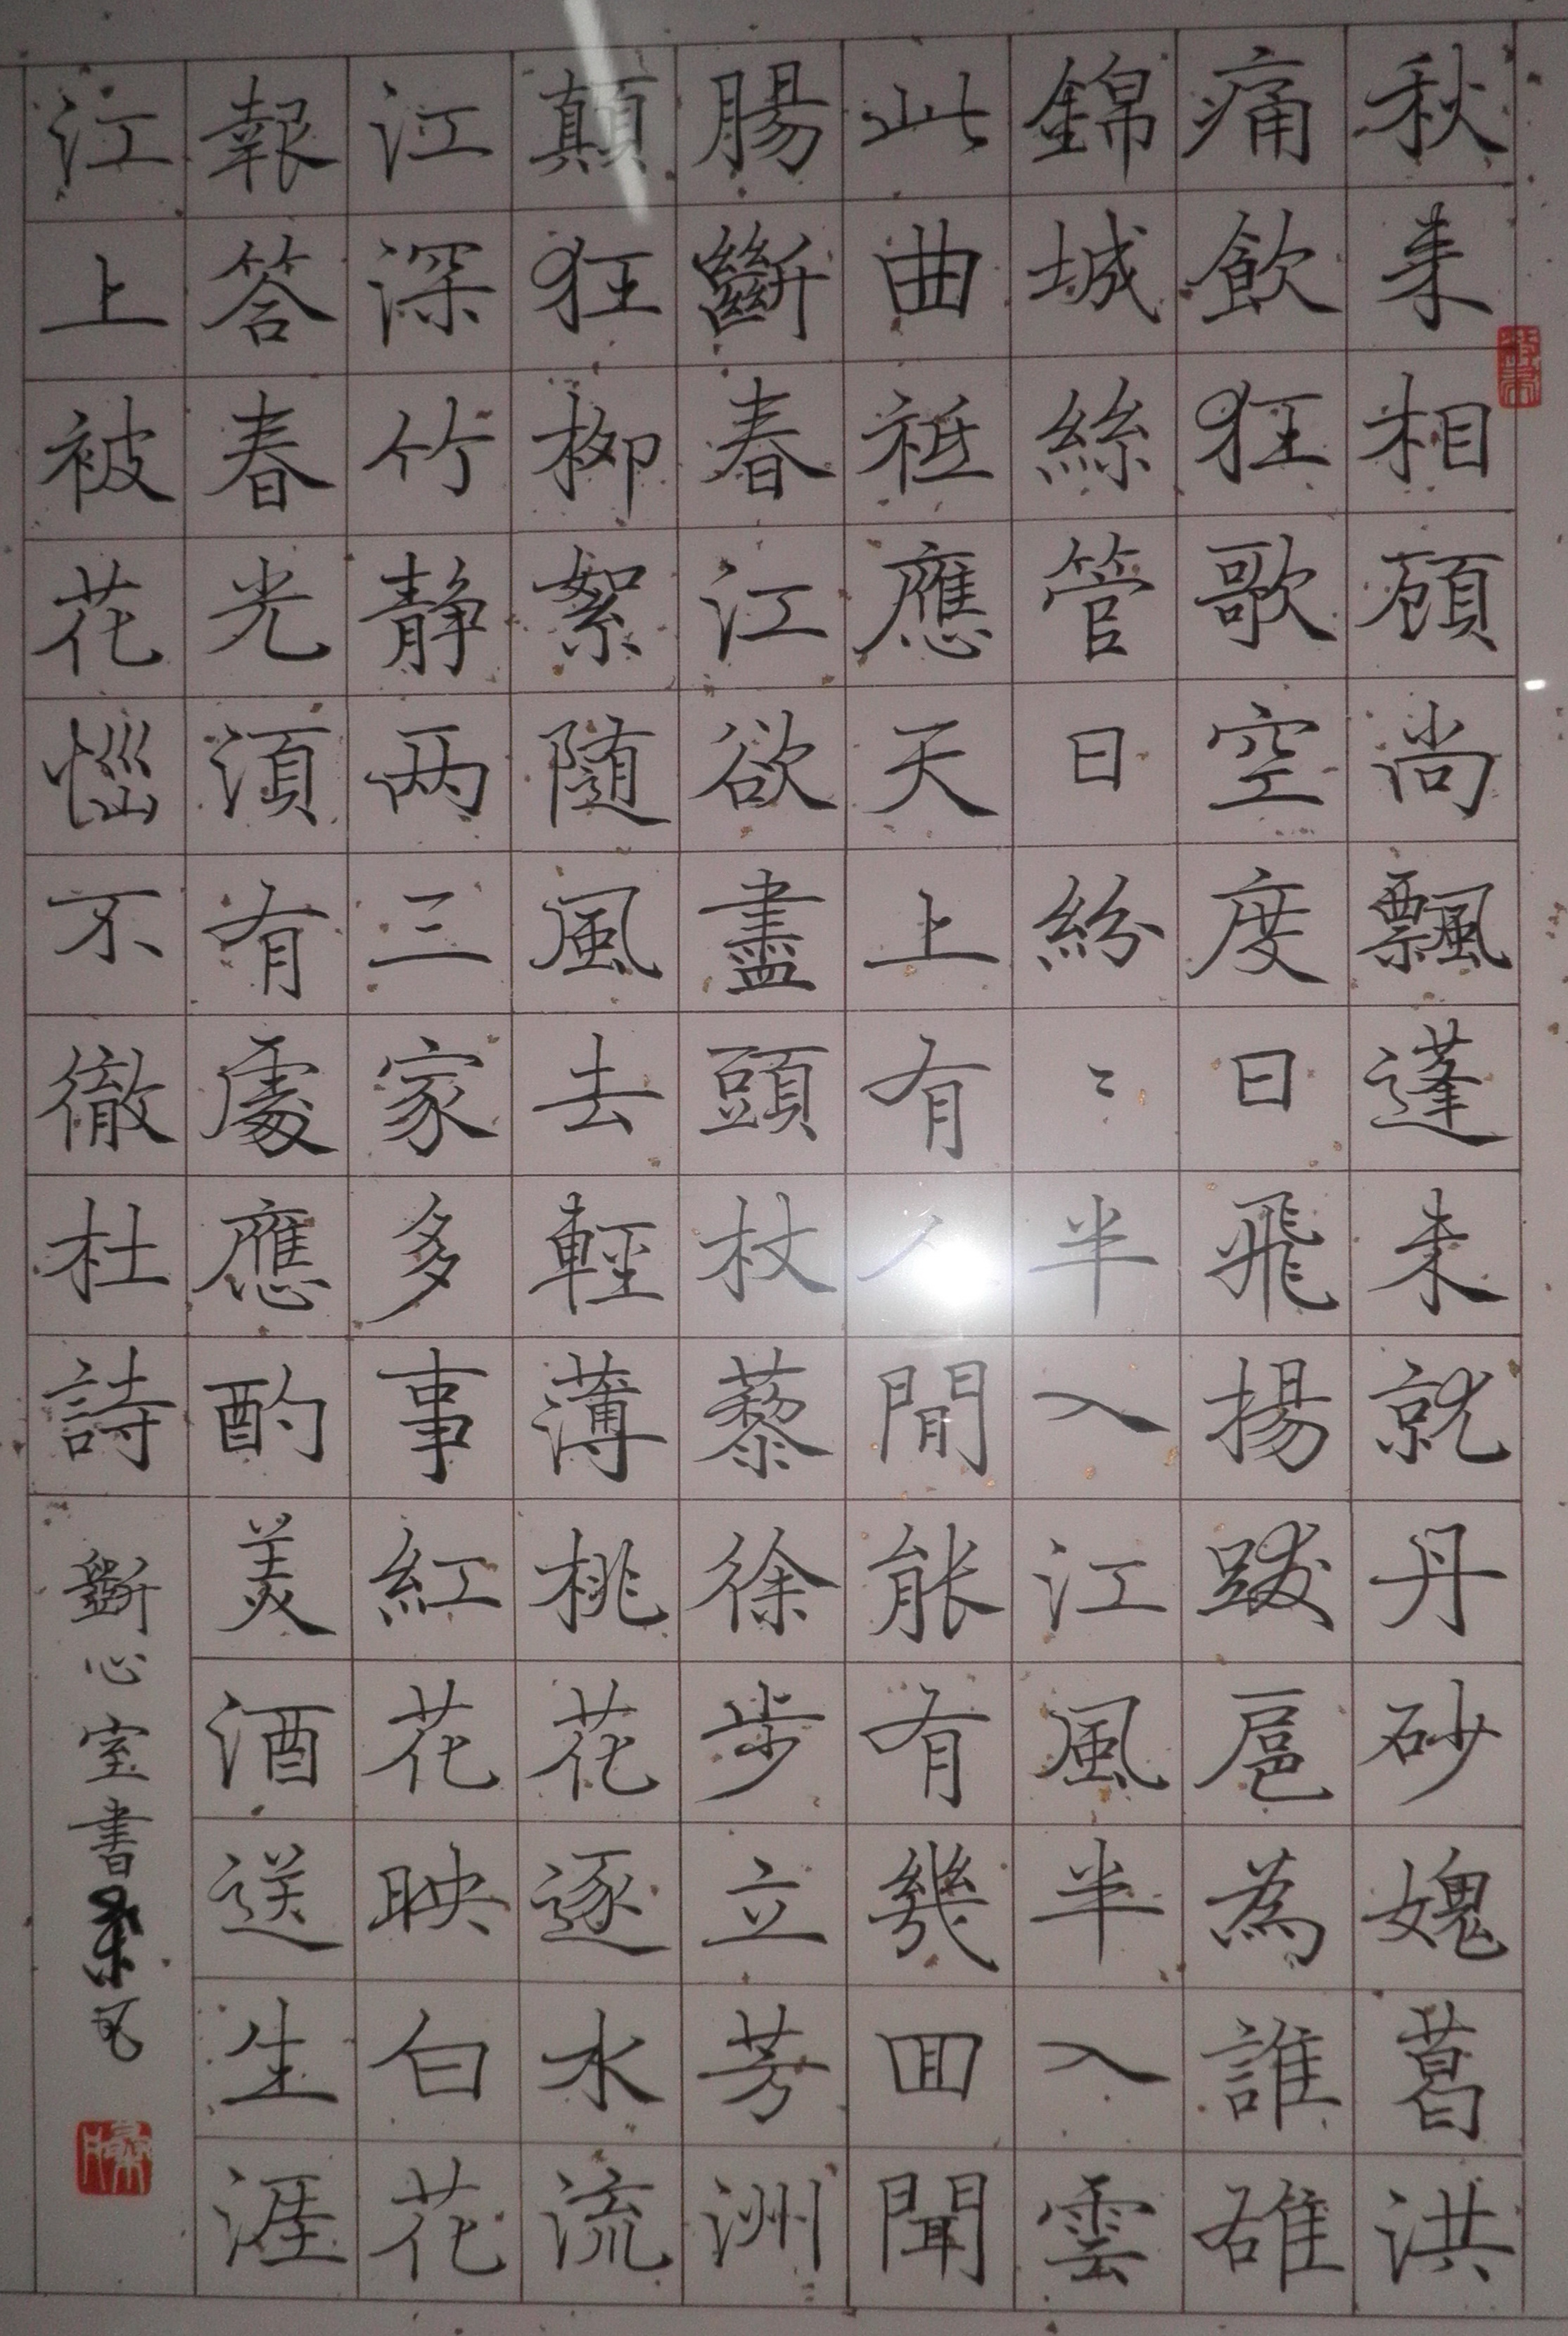 秋来相顧尚飄蓬未就丹砂媿葛洪
痛飲狂歌空度日飛揚跋扈為誰雄
錦城絲管日紛〻半入江風半入雲
此曲祗應天上有人間能有幾回聞
腸斷春江欲盡頭杖藜徐步立芳洲
顛狂柳絮隨風去輕薄桃花逐水流
江深竹靜兩三家多事紅花映白花
報答春光須有處應酌美酒送生涯
江上被花惱不徹杜詩
斷心室書